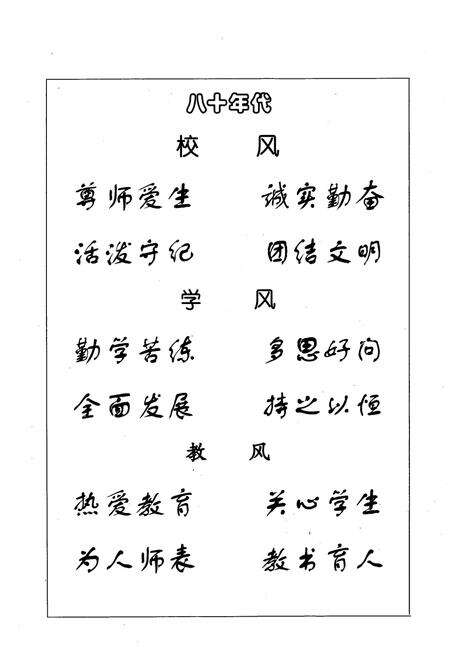 八十年代
校 风
尊师爱生 诚实勤奋
活泼守纪 团结文明
学 风
勤学苦练 多思好问
全面发展 持之以恒
教 风
热爱教育 关心学生
为人师表 教书育人